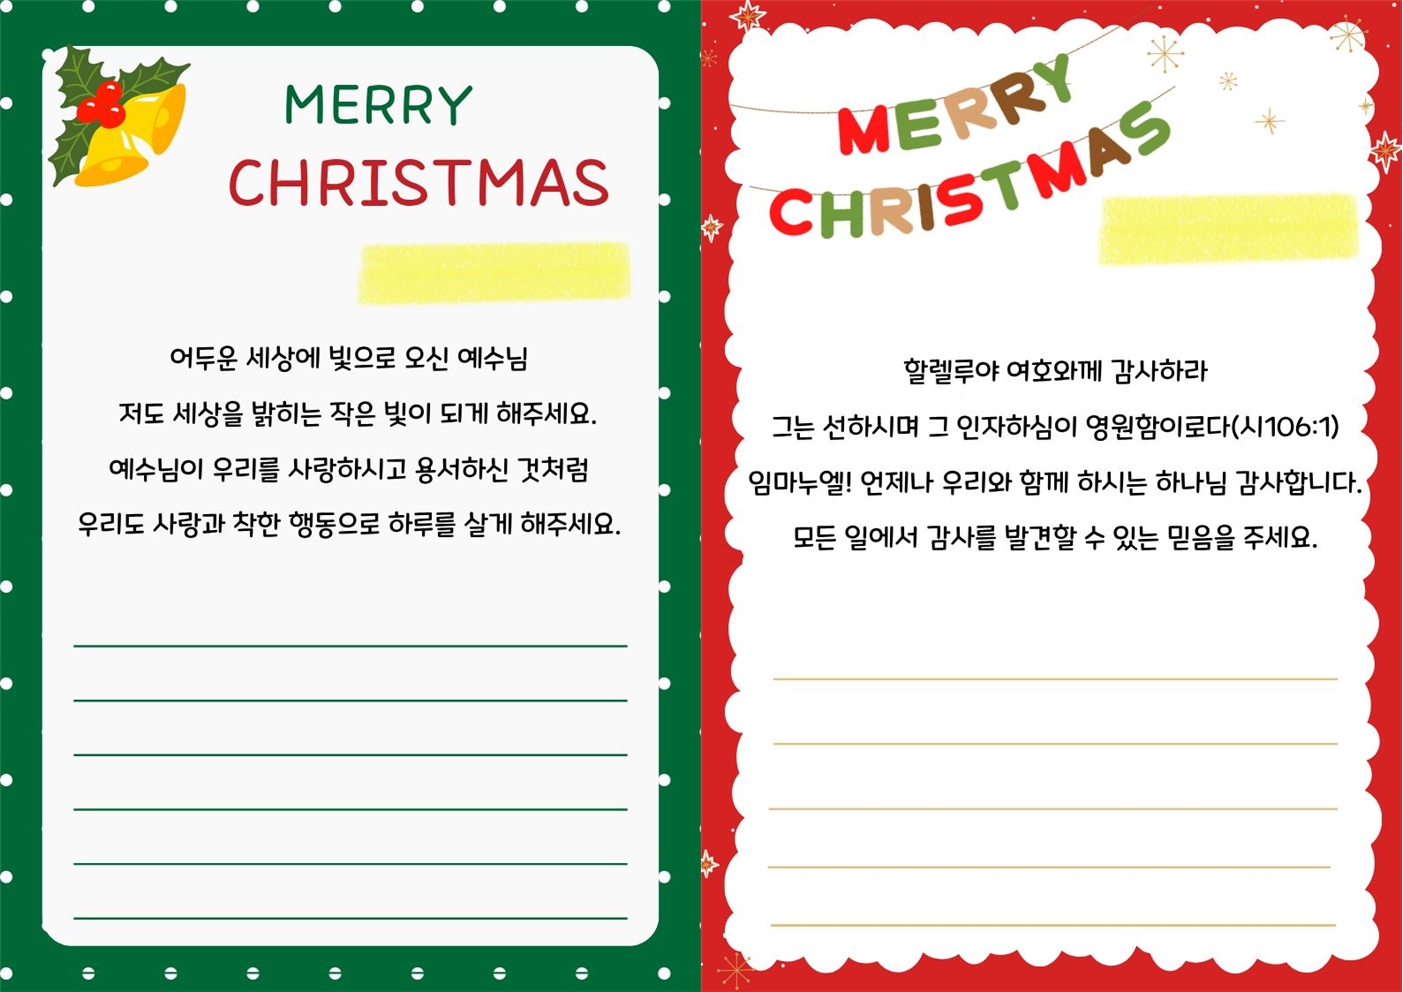 MERRY
CHRISTMAS
어두운 세상에 빛으로 오신 예수님
저도 세상을 밝히는 작은 빛이 되게 해주세요.
예수님이 우리를 사랑하시고 용서하신 것처럼
우리도 사랑과 착한 행동으로 하루를 살게 해주세요.
MERRY
CHRISTMAS
할렐루야 여호와께 감사하라
그는 선하시며 그 인자하심이 영원함이로다(시106:1)
임마누엘! 언제나 우리와 함께 하시는 하나님 감사합니다.
모든 일에서 감사를 발견할 수 있는 믿음을 주세요.